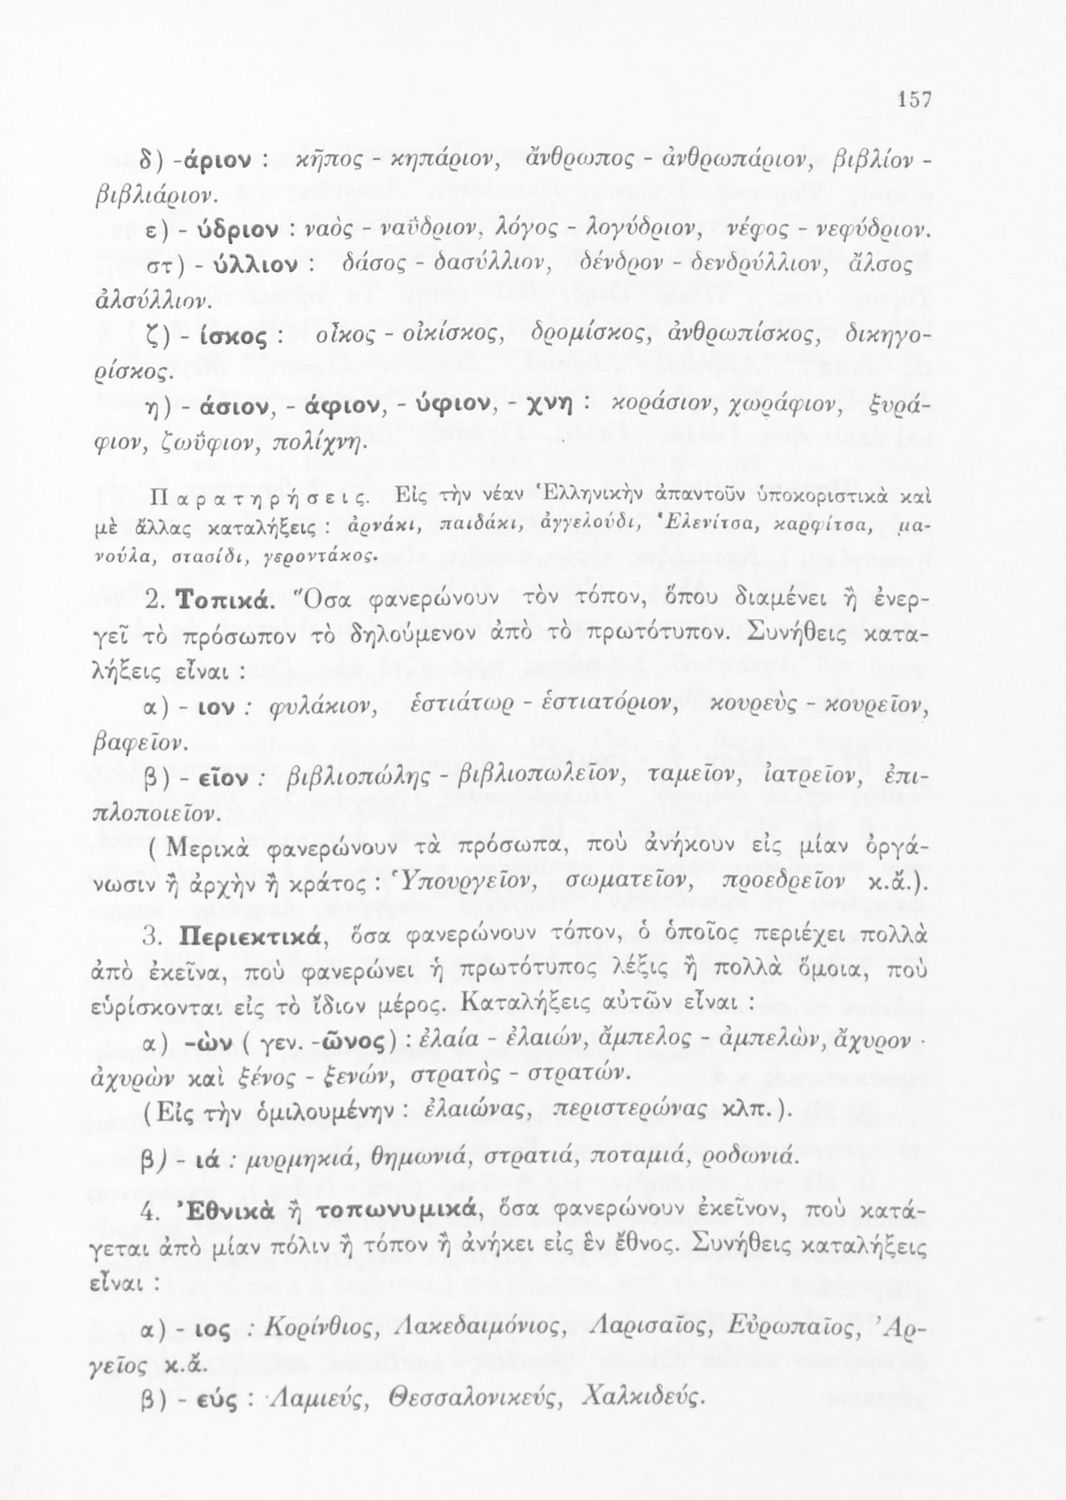 157
δ) -άριον : κῆπος - κηπάριον, ἄνθρωπος - ἀνθρωπάριον, βιβλίον -
βιβλιάριον.
ε) - ύδριον : ναὸς - ναΰδριον, λόγος - λογύδριον, νέφος - νεφύδριον.
στ) - ύλλιον : δάσος - δασύλλιον, δένδρον - δενδρύλλιον, ἄλσος
ἀλσύλλιον.
ζ) - ίσκος : οἶκος - οἰκίσκος, δρομίσκος, ἀνθρωπίσκος, δικηγο-
ρίσκος.
η) - άσιον, - άφιον, - ύφιον, - χνη : κοράσιον, χωράφιον, ξυρά-
φιον, ζωΰφιον, πολίχνη.
Παρατηρήσεις. Εἰς τὴν νέαν Ἑλληνικὴν ἀπαντοῦν ὑποκοριστικὰ καὶ
μὲ ἄλλας καταλήξεις : ἀρνάκι, παιδάκι, ἀγγελούδι, Ἑλενίτσα, καρφίτσα, μα-
νούλα, στασίδι, γεροντάκος.
2. Τοπικά. Ὅσα φανερώνουν τὸν τόπον, ὅπου διαμένει ἢ ἐνερ-
γεῖ τὸ πρόσωπον τὸ δηλούμενον ἀπὸ τὸ πρωτότυπον. Συνήθεις κατα-
λήξεις εἶναι :
α) - ιον : φυλάκιον, ἑστιάτωρ - ἑστιατόριον, κουρεὺς - κουρεῖον,
βαφεῖον.
β) - εῖον : βιβλιοπώλης - βιβλιοπωλεῖον, ταμεῖον, ἰατρεῖον, ἐπι-
πλοποιεῖον.
( Μερικὰ φανερώνουν τὰ πρόσωπα, ποὺ ἀνήκουν εἰς μίαν ὀργά-
νωσιν ἢ ἀρχὴν ἢ κράτος : Ὑπουργεῖον, σωματεῖον, προεδρεῖον κ.ἄ.).
3. Περιεκτικά, ὅσα φανερώνουν τόπον, ὁ ὁποῖος περιέχει πολλὰ
ἀπὸ ἐκεῖνα, ποὺ φανερώνει ἡ πρωτότυπος λέξις ἢ πολλὰ ὅμοια, ποὺ
εὑρίσκονται εἰς τὸ ἴδιον μέρος. Καταλήξεις αὐτῶν εἶναι :
α) -ὼν ( γεν. -ῶνος) : ἐλαία - ἐλαιών, ἄμπελος - ἀμπελὼν, ἄχυρον -
ἀχυρὼν καὶ ξένος - ξενών, στρατὸς - στρατών.
(Εἰς τὴν ὁμιλουμένην : ἐλαιώνας, περιστερώνας κλπ.).
β) - ιά : μυρμηκιά, θημωνιά, στρατιά, ποταμιά, ροδωνιά.
4. Ἐθνικὰ ἢ τοπωνυμικά, ὅσα φανερώνουν ἐκεῖνον, ποὺ κατά-
γεται ἀπὸ μίαν πόλιν ἢ τόπον ἢ ἀνήκει εἰς ἓν ἔθνος. Συνήθεις καταλήξεις
εἶναι :
α) - ιος : Κορίνθιος, Λακεδαιμόνιος, Λαρισαῖος, Εὐρωπαῖος, Ἀρ-
γεῖος κ.ἄ.
β) - εύς : Λαμιεύς, Θεσσαλονικεύς, Χαλκιδεύς.